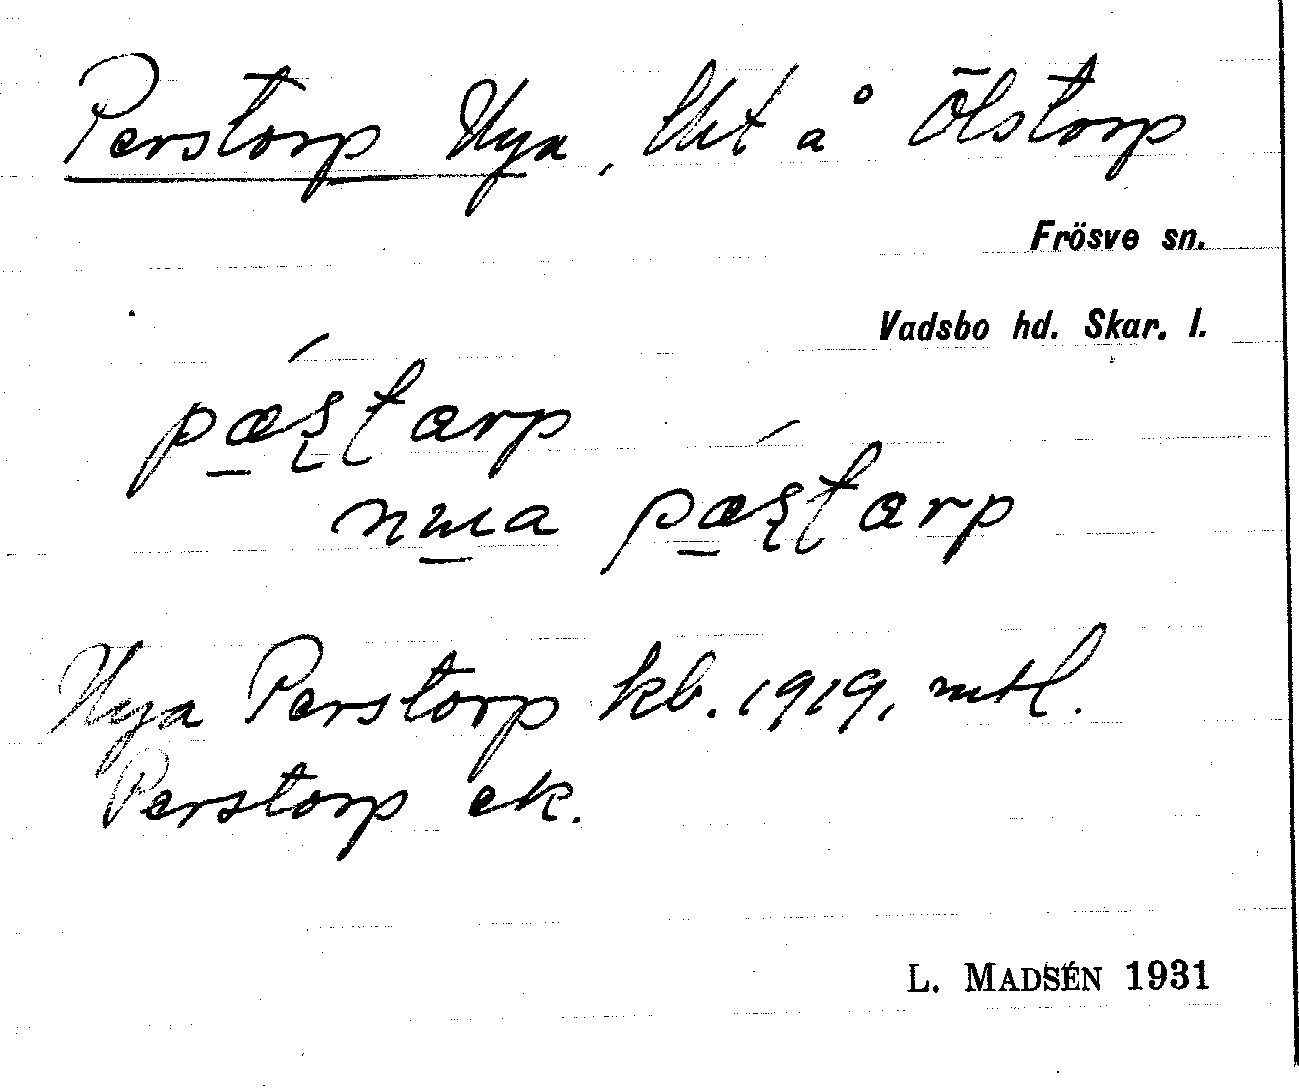 Perstorp Nya, lht å Ölstorp
Frösve sn.
Vadsbo hd. Skar. l.
Nya Perstorp kb. 1919, mtl.
Perstorp ek.
L. MADSÉN 1931